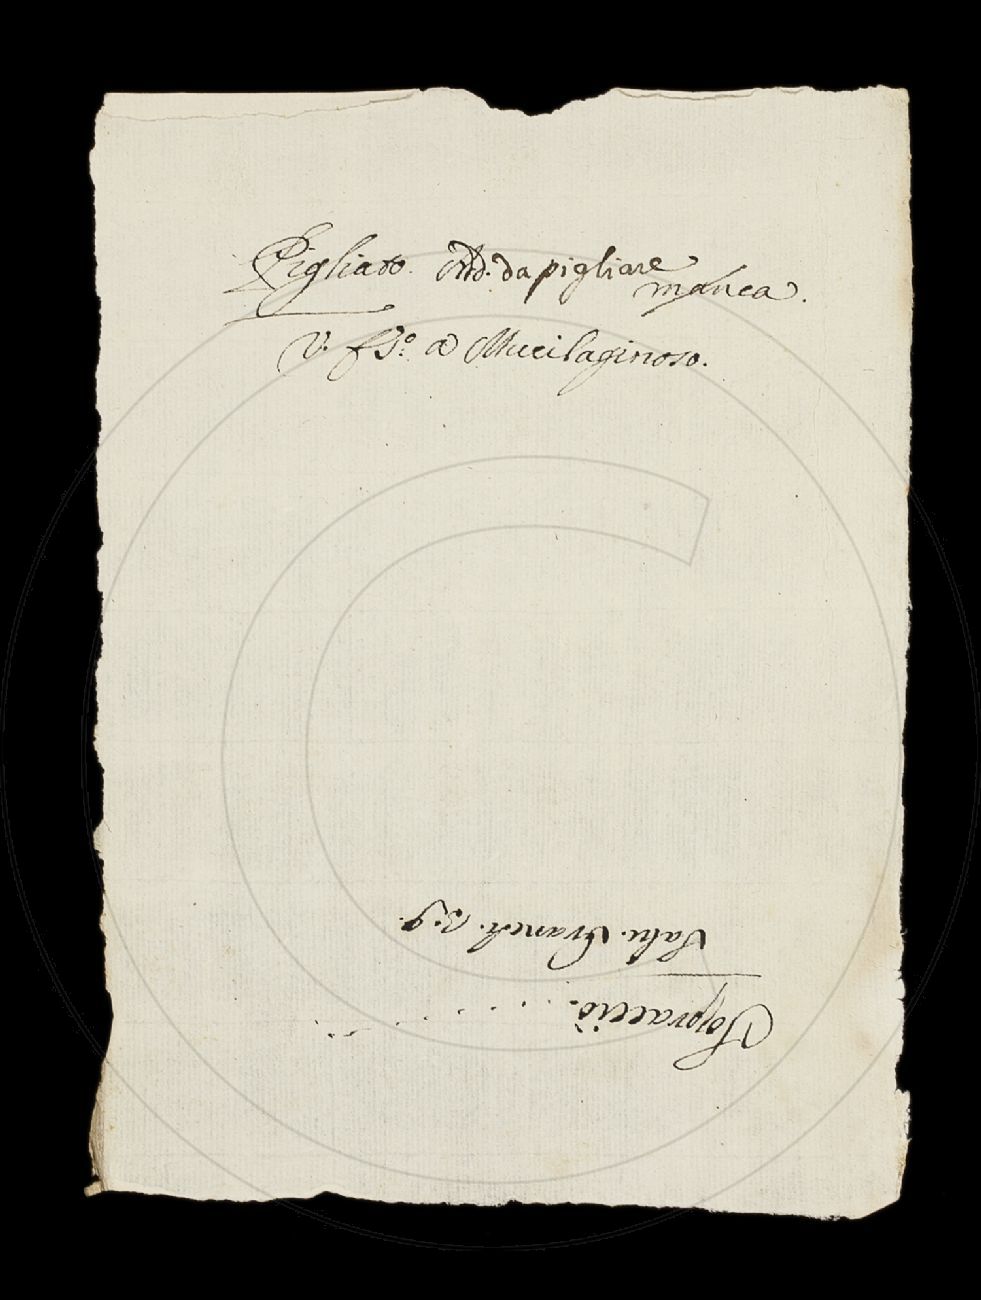 Pigliato. Add. da pigliare
manca.
V. f 3.º a Mucilaginoso.
Sopracciò. . . . . . . .
Salv. Granch. 3. 9.